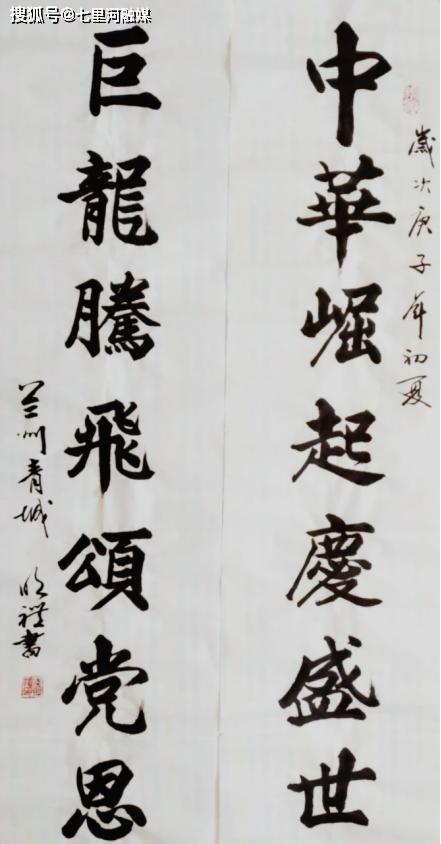 搜狐号@七里河融媒
歲次庚子年初夏
中華崛起慶盛世
巨龍騰飛頌党恩
兰州青城 明禮書